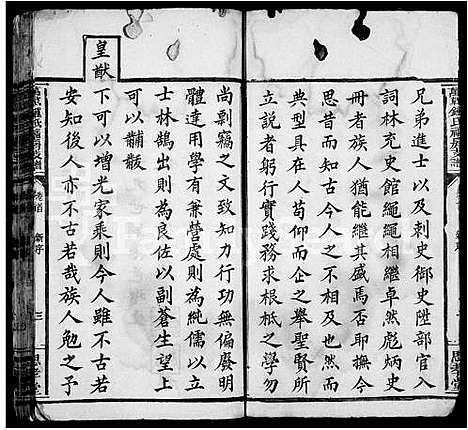 兄弟進士以及刺史御史陞部官入
詞林充史館繩繩相繼卓然彪炳史
冊者族人猶能繼其盛焉否耶撫今
思昔而知古今人之不相及也然而
典型具在人苟仰而企之舉聖賢所
立説者躬行實踐務求根柢之學勿
尚剽竊之文致知力行功無偏廢明
體達用學有兼營處則為純儒以立
士林鵠出則為良佐以副蒼生望上
可以黼黻
皇猷
下可以增光家乘則今人雖不古若
安知後人亦不古若哉族人勉之予
新序
三